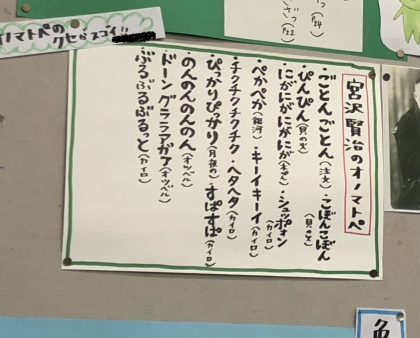 オノマトペの
クセがスゴイ!!
宮沢賢治のオノマトペ
・ごとんごとん(注文)・こぼんこぼん(貝の火)
・ぴんぴん(貝の火)
・にがにがにがにが(ポラン)・シュッポォン(カイロ)
・ぺかぺか(銀河)・キーイキーイ(カイロ)
・チクチクチクチク・ヘタヘタ(カイロ)
・ぴっかりぴっかり(月夜の)・すぱすぱ(カイロ)
・のんのんのんのん(オツベル)
・ドーングララアガア(オツベル)
・ぶるぶるぶるっと(カイロ)